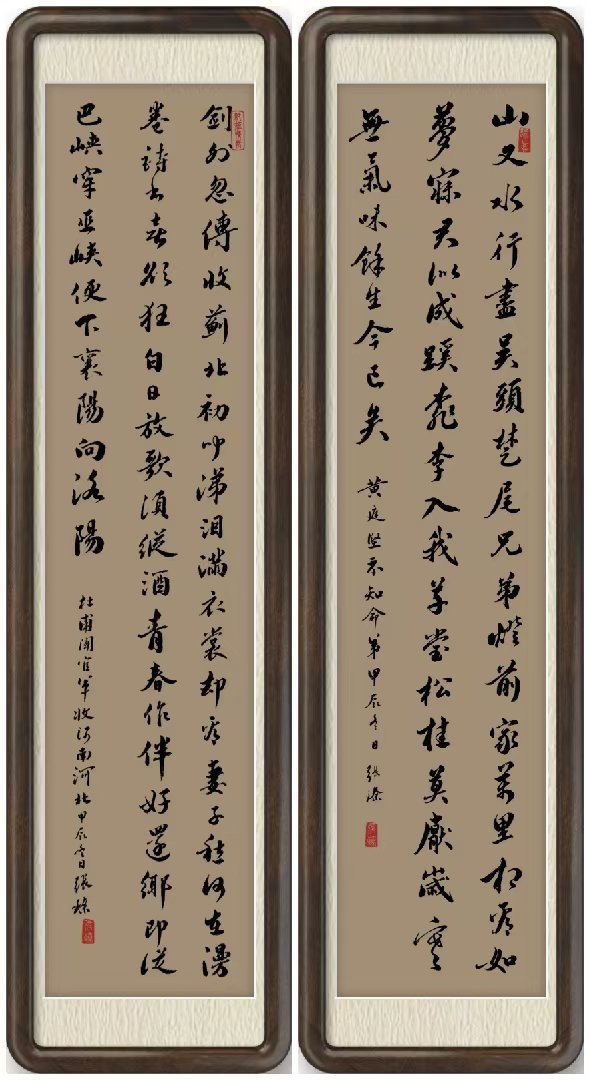 山又水行盡吳頭楚尾兄弟燈前家萬里相看如
夢寐君似成蹊桃李入我草堂松桂莫厭歲寒
無氣味餘生今已矣
黄庭堅示知命弟甲辰冬日 張
劍外忽傳收薊北初聞涕淚滿衣裳却看妻子愁何在漫
卷詩書喜欲狂白日放歌須縱酒青春作伴好還鄉即從
巴峽穿巫峽便下襄陽向洛陽
杜甫聞官軍收河南河北甲辰冬日張